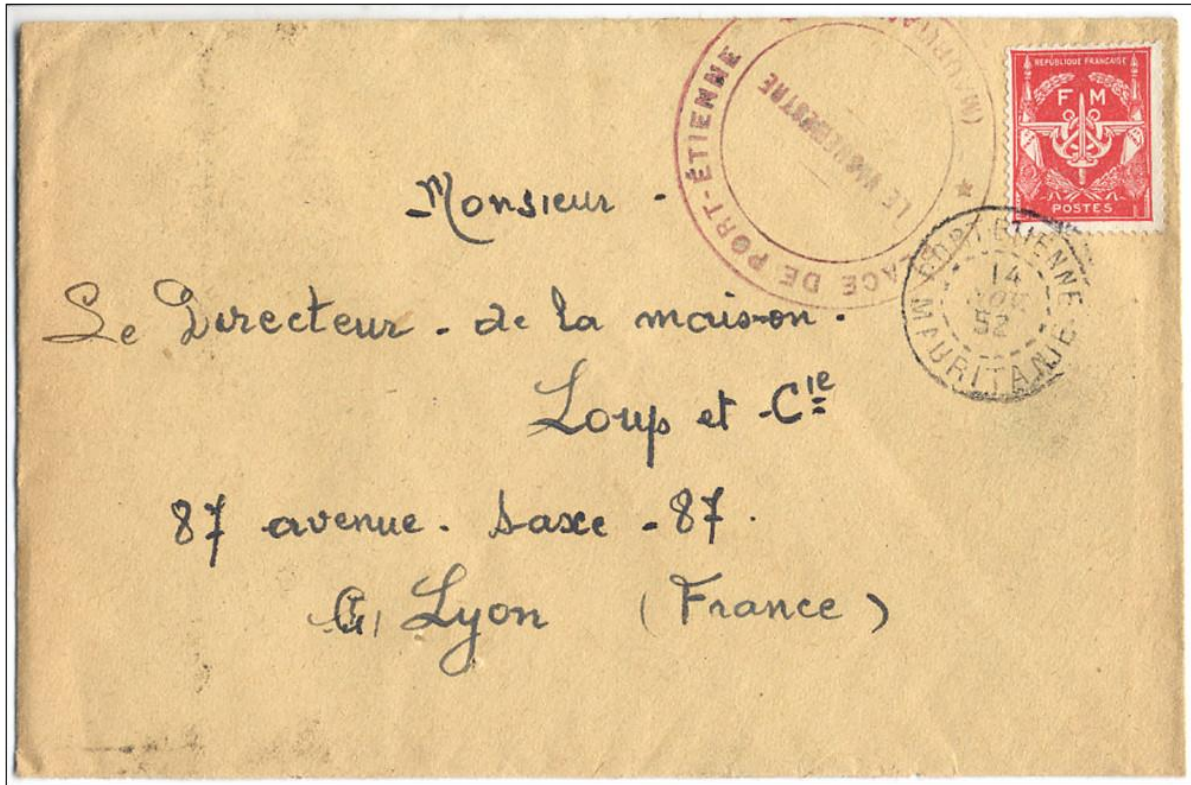 PLACE DE PORT-ÉTIENNE
LE VAGUEMESTRE
RÉPUBLIQUE FRANÇAISE
F M
POSTES
PORT-ETIENNE
14
NOV
52
MAURITANIE
Monsieur -
Le Directeur - de la maison -
Loup et Cie
87 avenue - Saxe - 87 -
à Lyon (France)